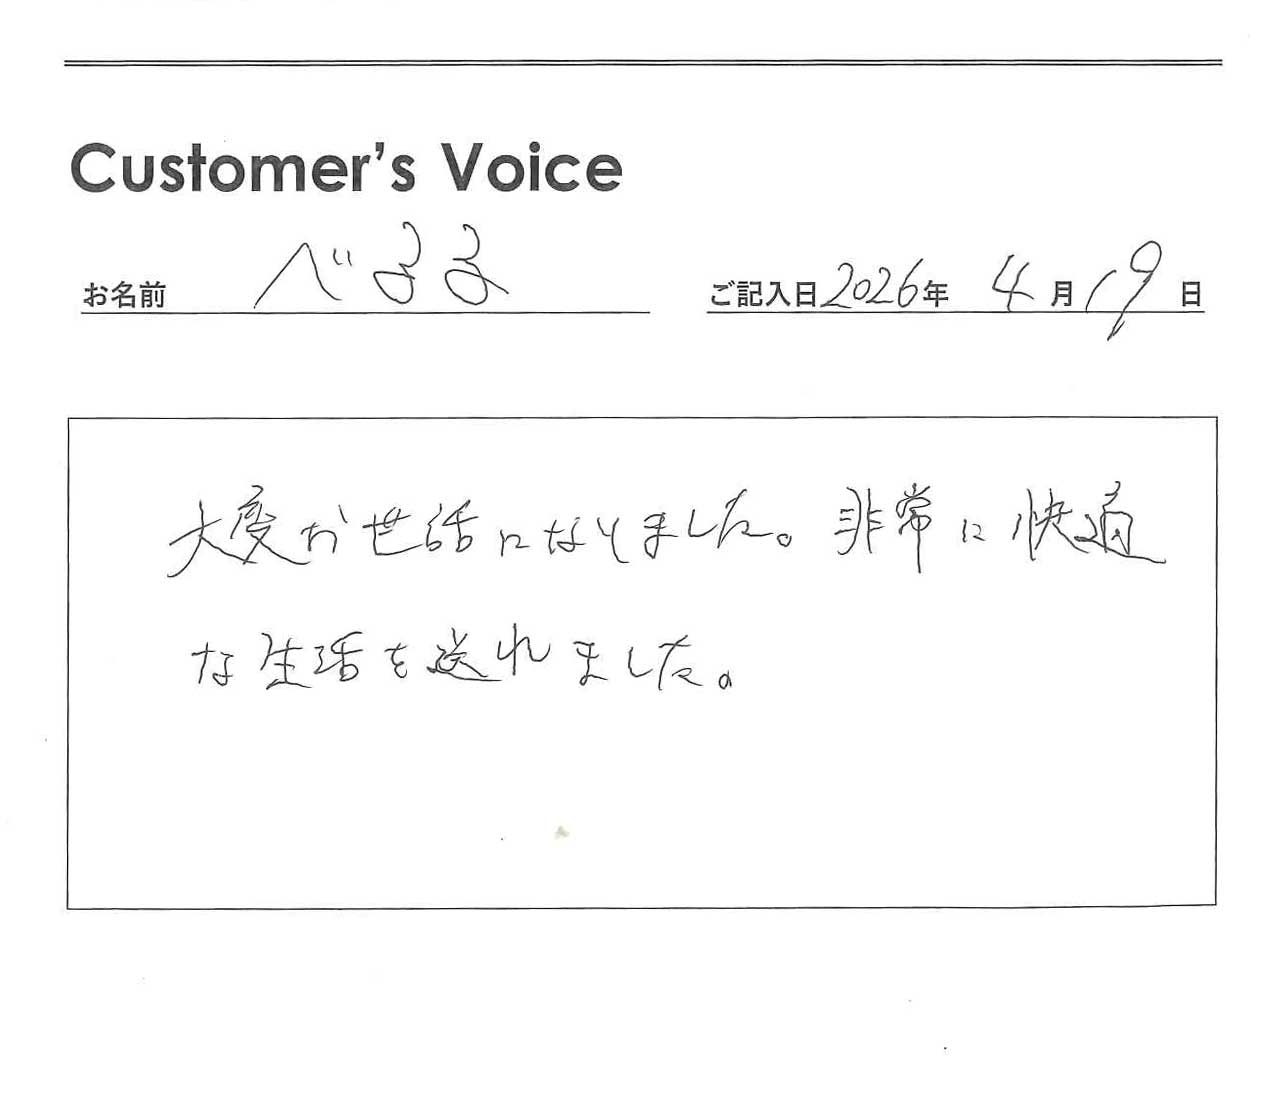 Customer's Voice
お名前 べるる ご記入日 2026年 4月 19日
大度お世話になりました。非常に快適
な生活を送れました。